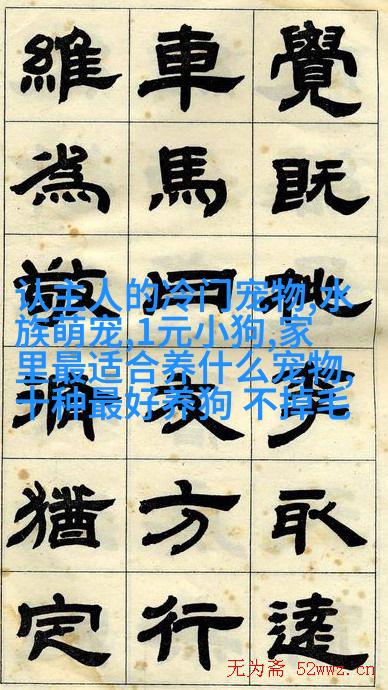 覺既取達
車馬方行
維為猶定
认主人的冷门宠物,水
族萌宠,1元小狗,家
里最适合养什么宠物,
十种最好养狗 不掉毛
无为斋 52wwz.cn